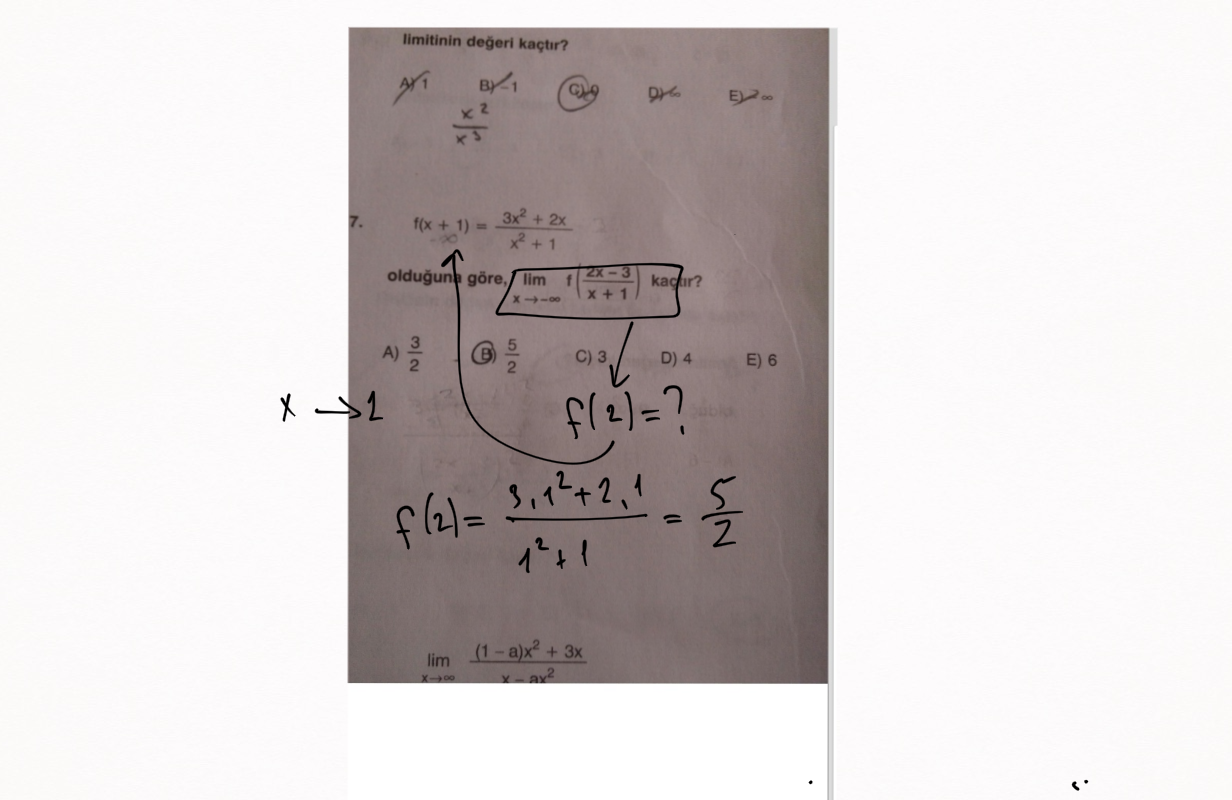 limitinin değeri kaçtır?
A) 1 B) -1 C) 0 D) ∞ E) -∞
x²/x³
7. f(x + 1) = (3x² + 2x)/(x² + 1)
-∞
olduğuna göre, lim x→-∞ f((2x - 3)/(x + 1)) kaçtır?
A) 3/2 B) 5/2 C) 3 D) 4 E) 6
x → 1
f(2) = ?
f(2) = (3.1² + 2.1)/(1² + 1) = 5/2
lim x→∞ ((1 - a)x² + 3x)/(x - ax²)